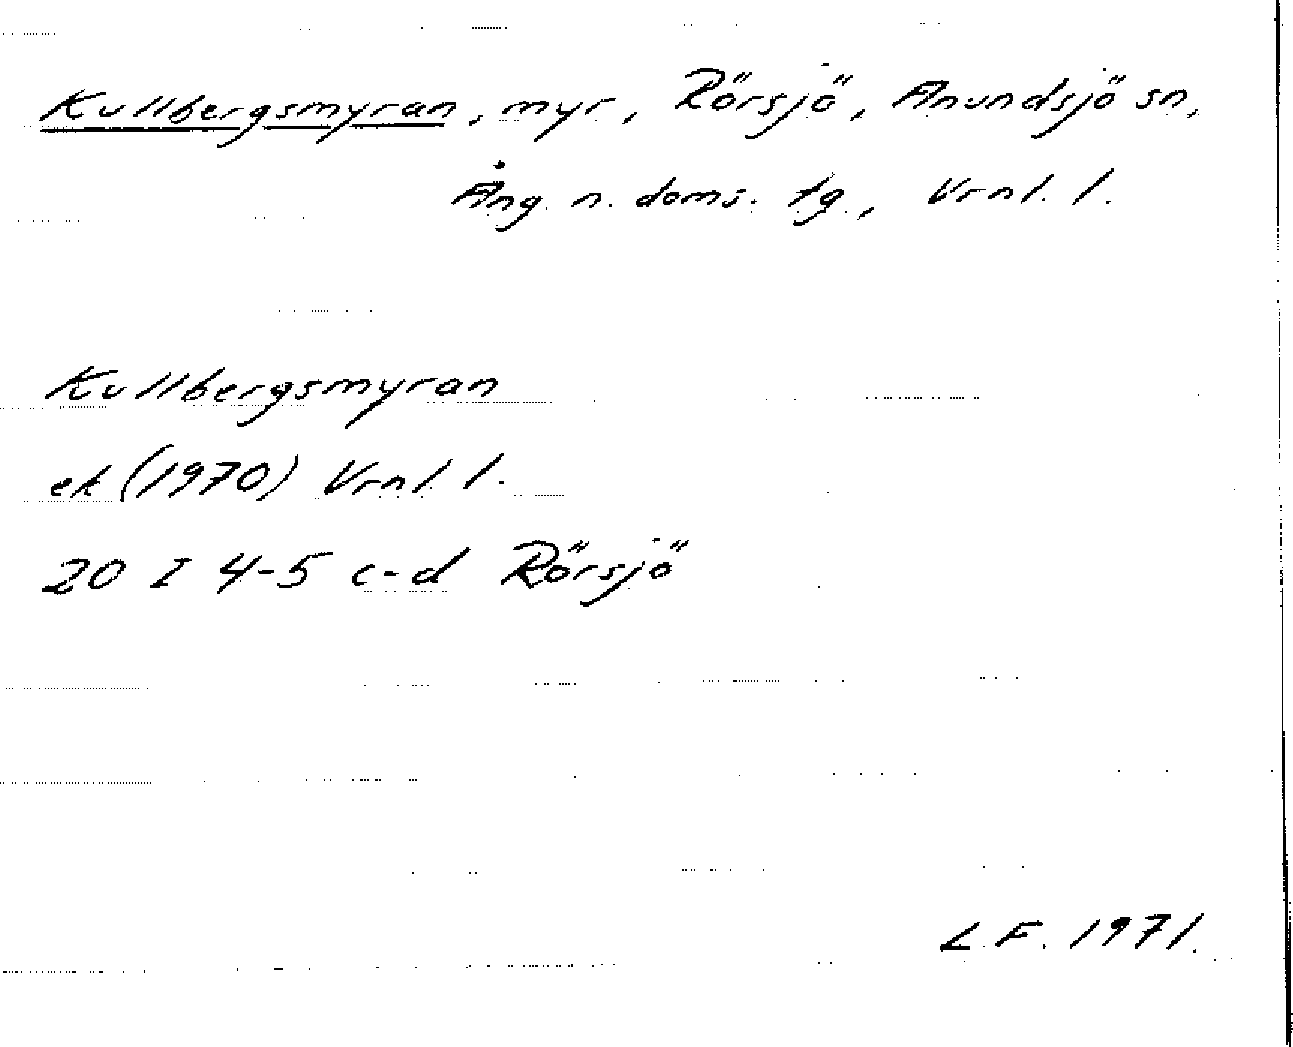 Kullbergsmyran, myr, Rörsjö, Anundsjö sn,
Ång. n. doms. tg., Vrnl. l.
Kullbergsmyran
ek (1970) Vrnl. l.
20 I 4-5 c-d Rörsjö
L.F. 1971.